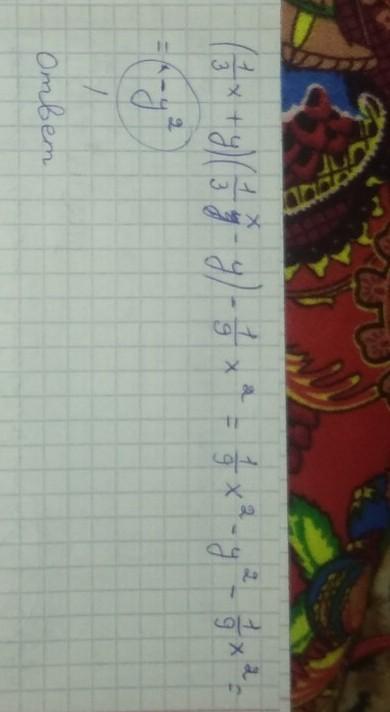 (1/3 x + y)(1/3 x - y) - 1/9 x² = 1/9 x² - y² - 1/9 x² =
= - y²
ответ